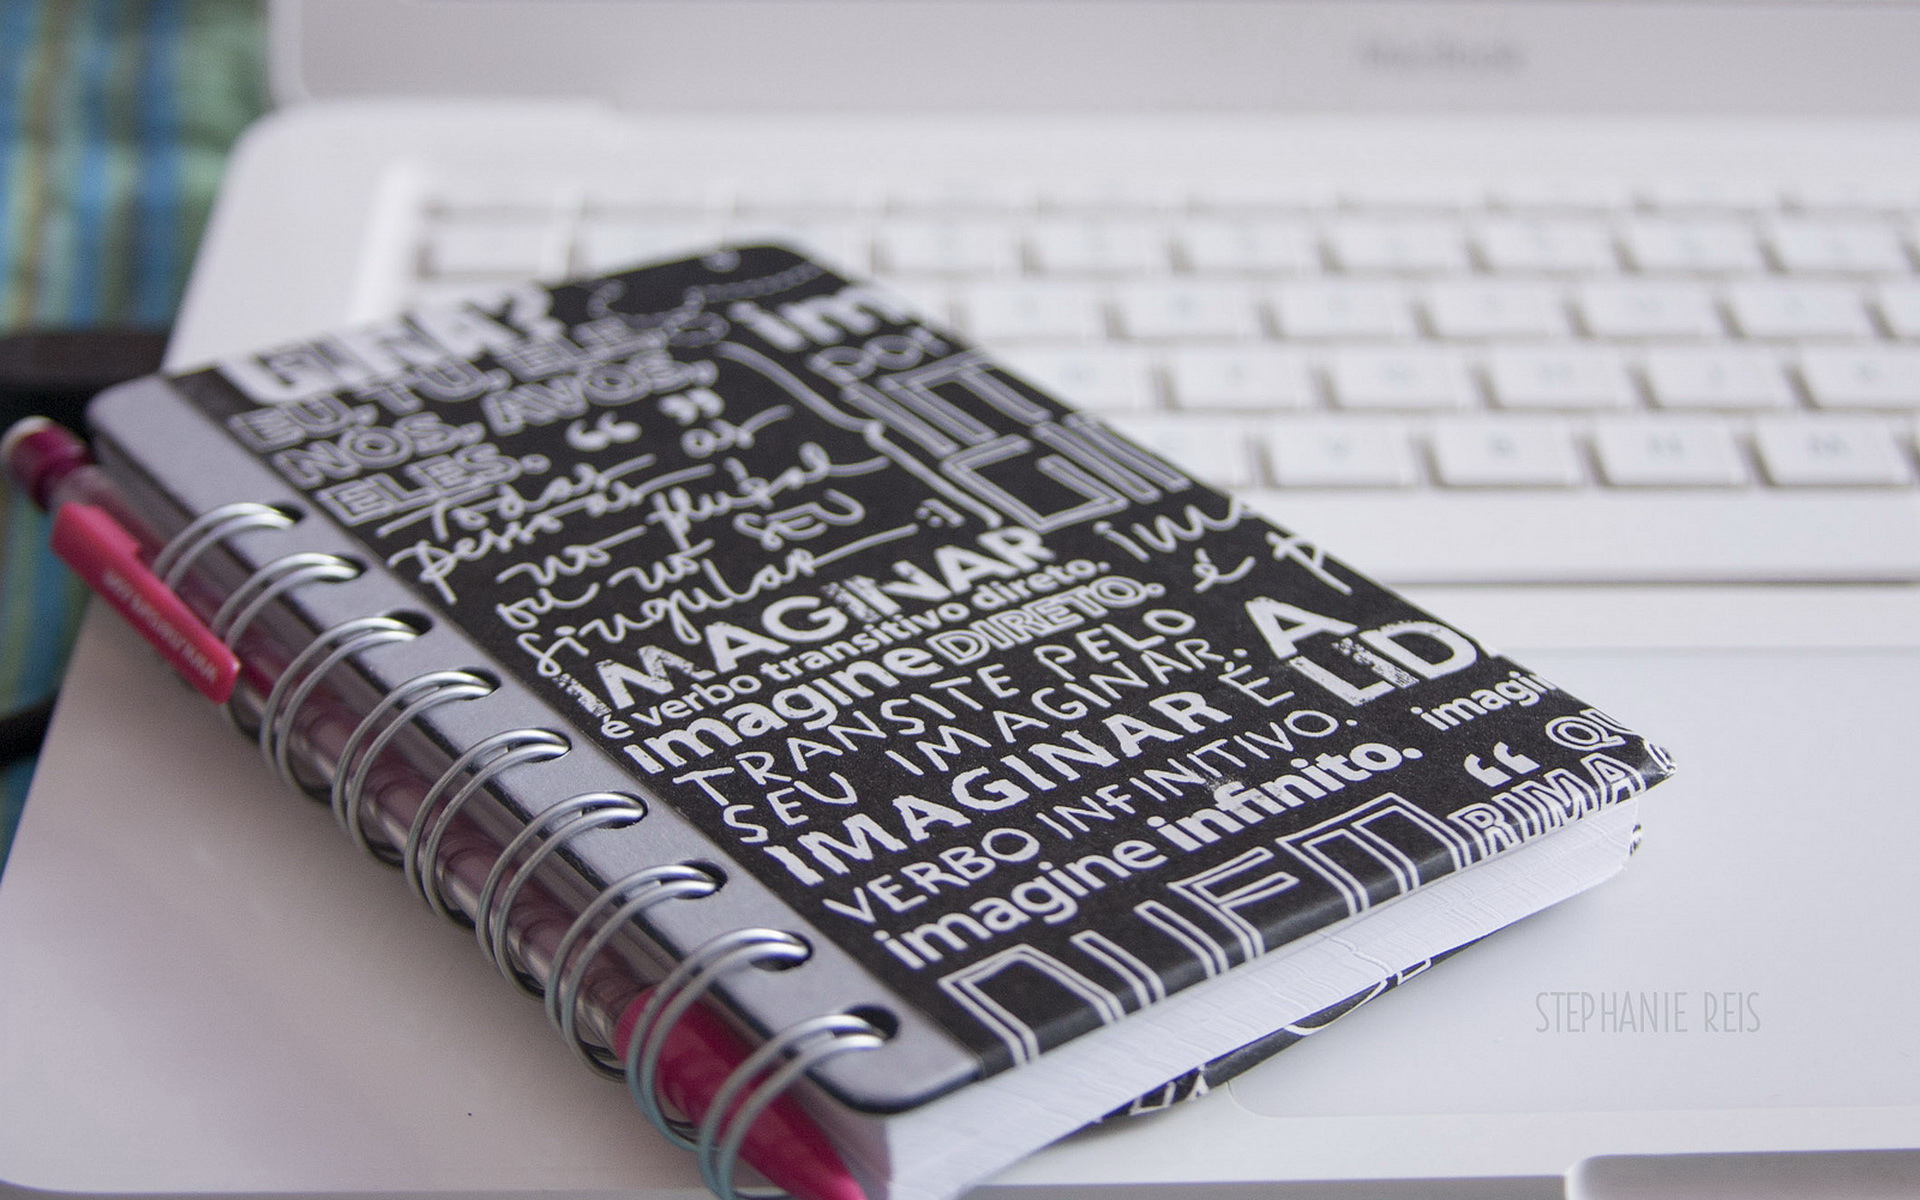 GINA?
EU, TU, ELE,
NÓS, AVÓS,
ELES. “ ”
todas as
pessoas
no plural
ou no SEU
singular :)
IMAGINAR
é verbo transitivo direto.
imagine DIRETO.
TRANSITE PELO
SEU IMAGINAR.
IMAGINAR É
VERBO INFINITIVO.
imagine infinito.
im
por
A
LID
imagin
“ QU
RIMA
STEPHANIE REIS